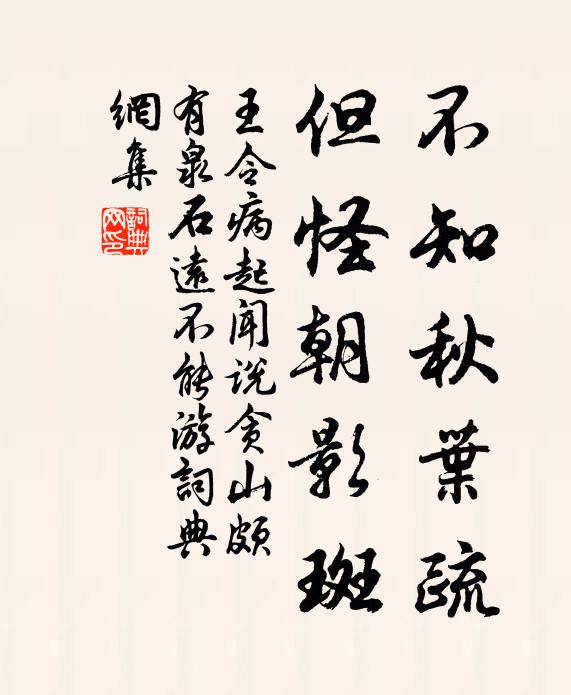 不知秋葉疏
但怪朝影斑
王令病起聞説貪山頗
有泉石遠不能游詞典
網集
詞典网印